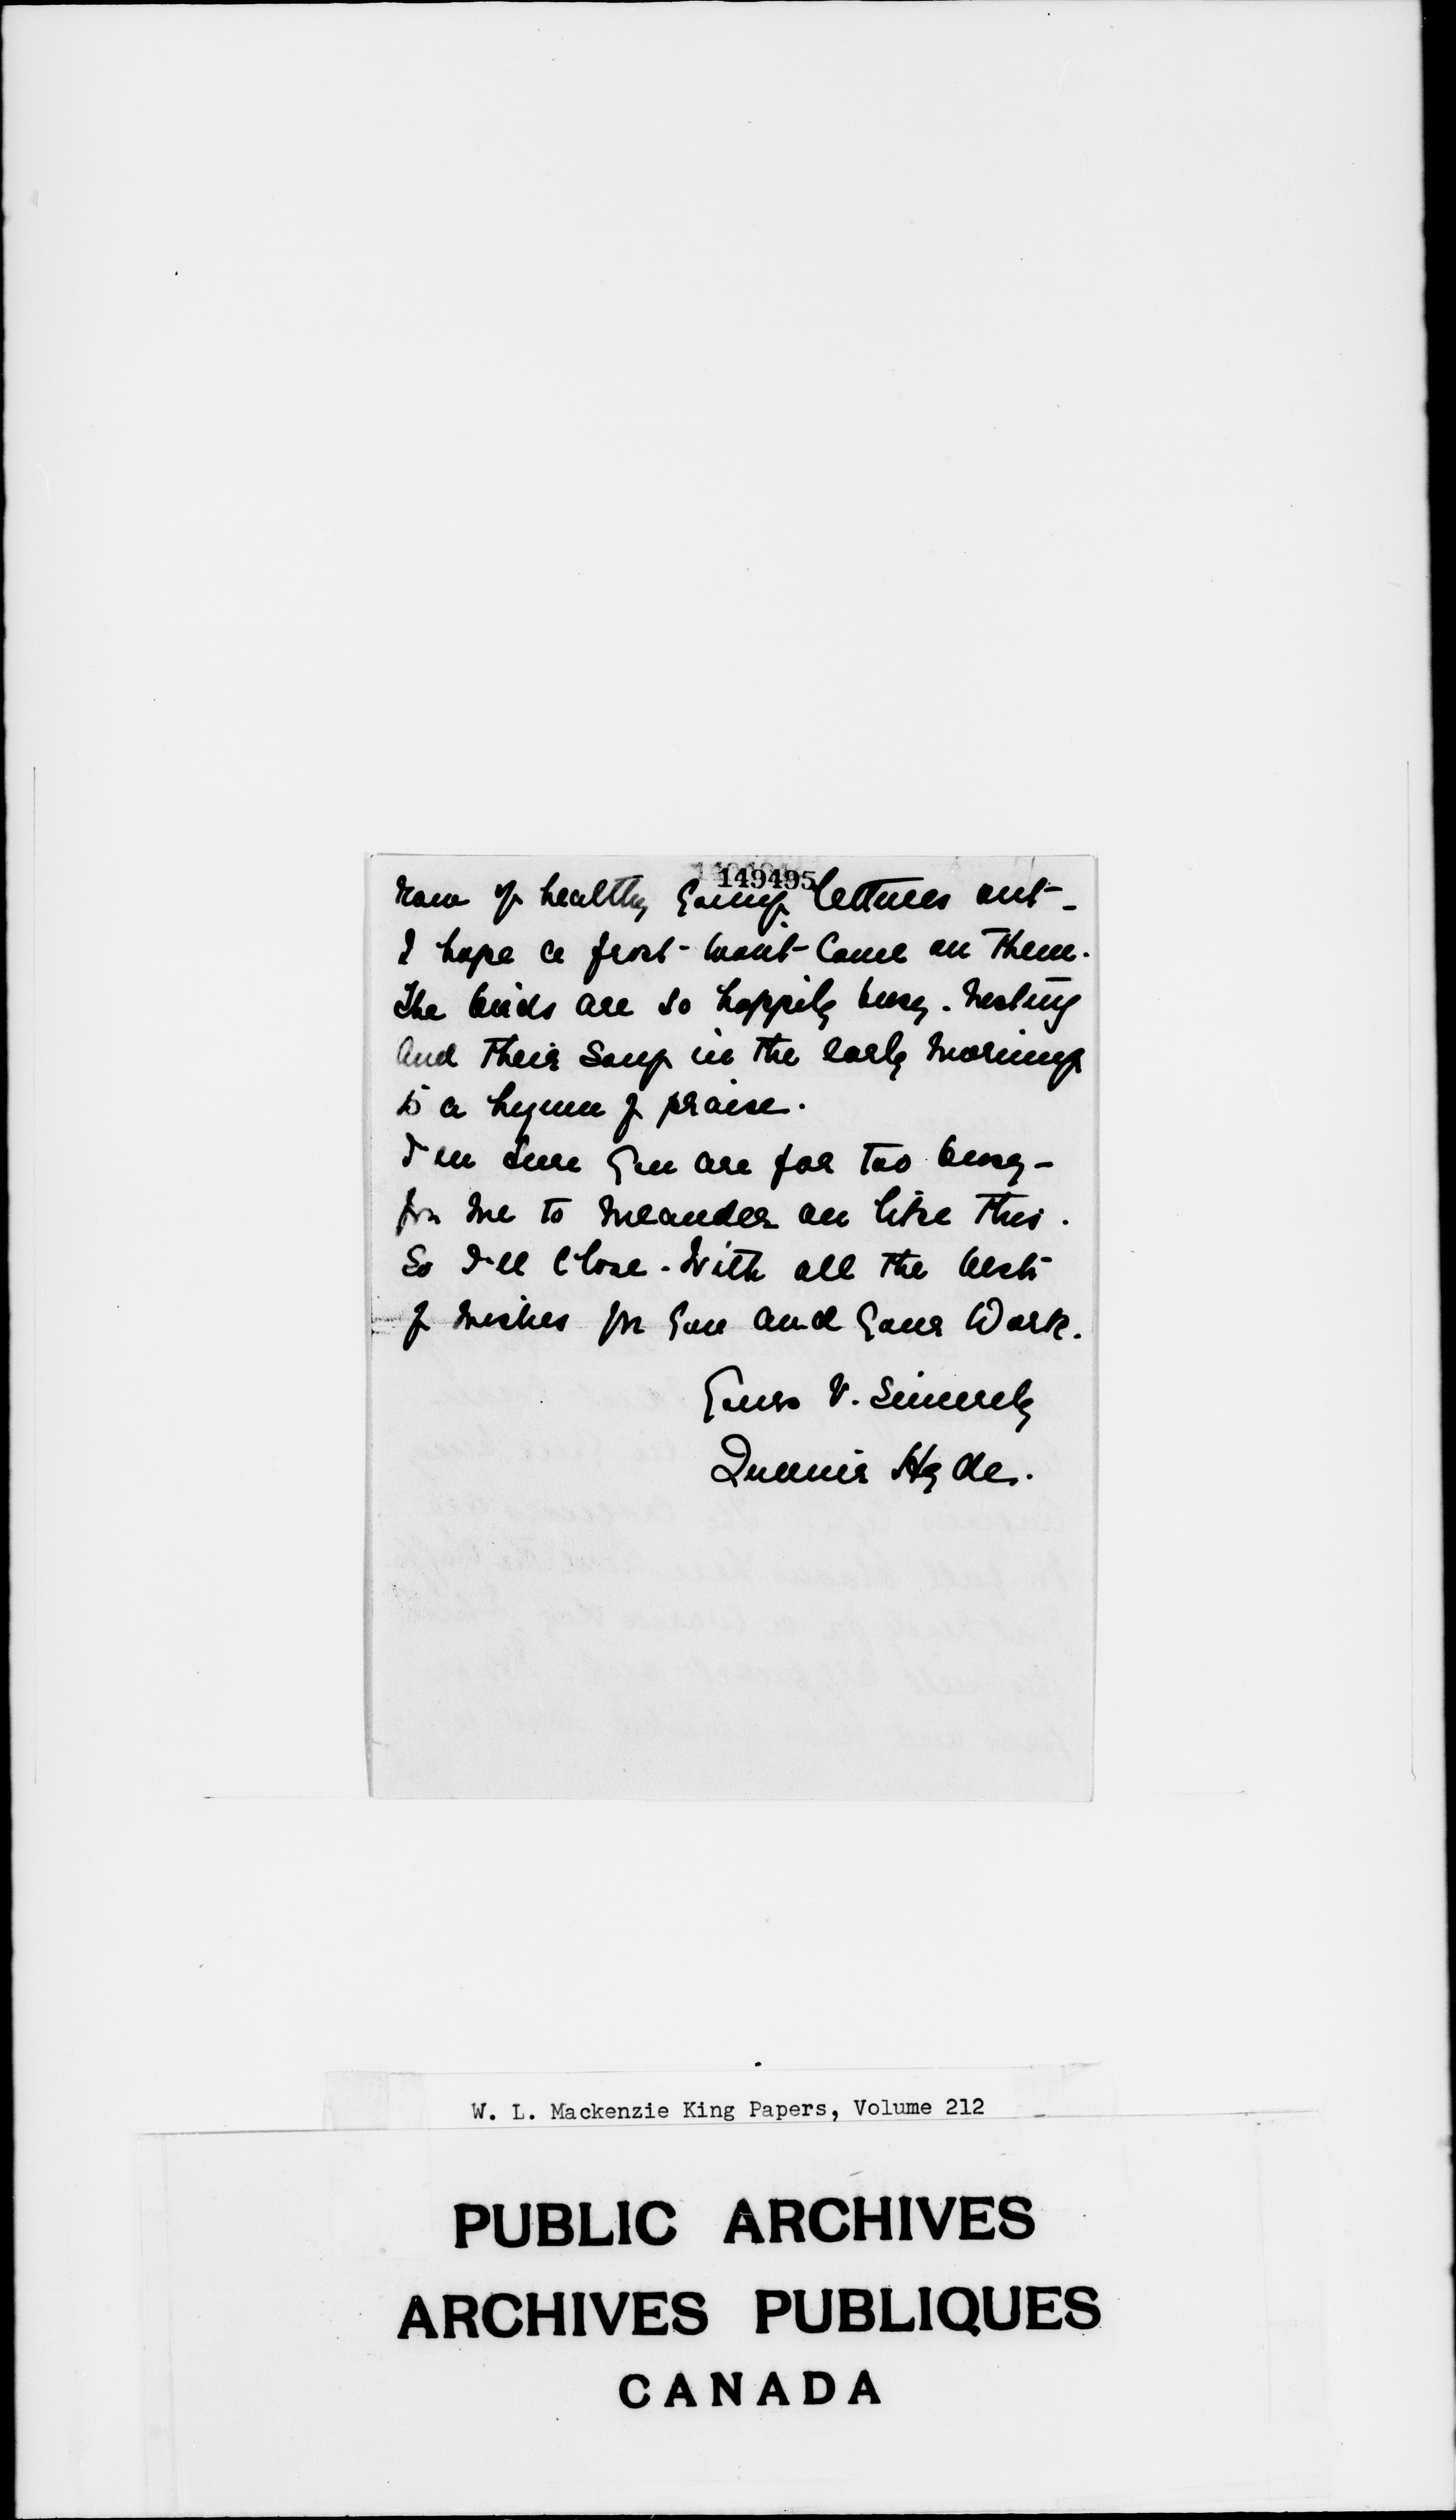 149495
row of healthy young lettuces out -
I hope a frost won't come on them.
The birds are so happily busy. nesting
and their song in the early mornings
is a hymn of praise.
I'm sure you are far too busy -
for me to meander on like this.
So I'll close. With all the best
of wishes for you and your work.
Yours V. Sincerely
Hyde.
W. L. Mackenzie King Papers, Volume 212
PUBLIC ARCHIVES
ARCHIVES PUBLIQUES
CANADA